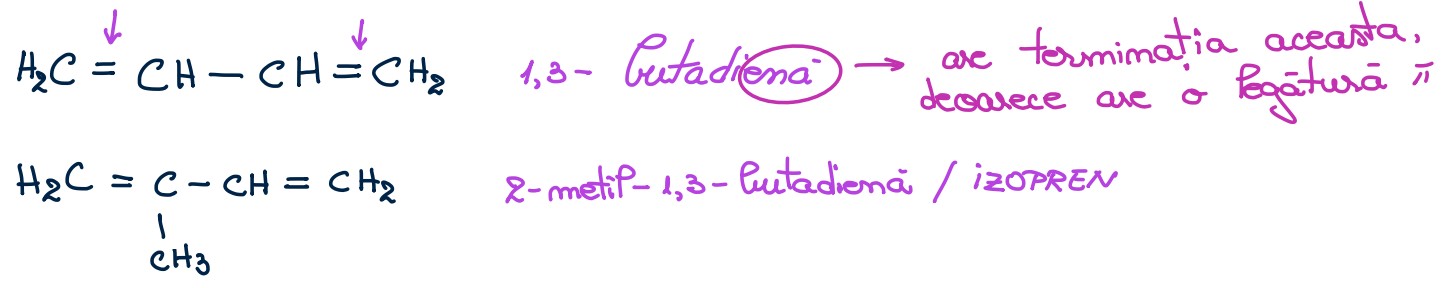 H₂C = CH – CH = CH₂ 1,3 - butadienă → are terminația aceasta,
deoarece are o legătură π
H₂C = C – CH = CH₂ 2-metil-1,3-butadienă / IZOPREN
|
CH₃